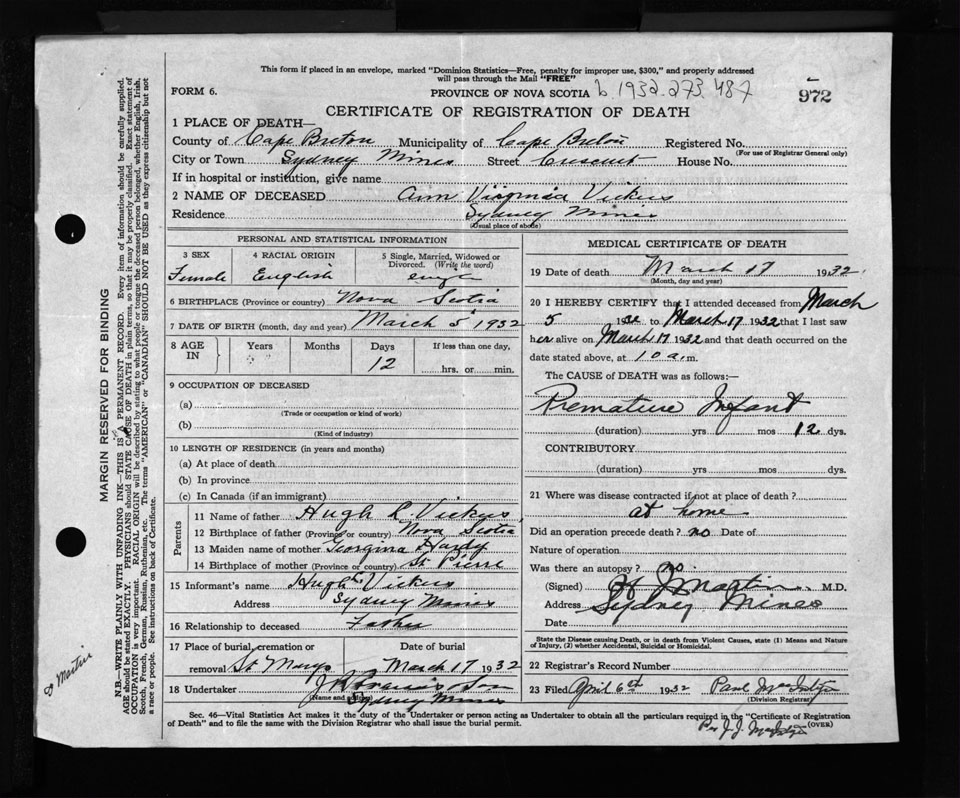 This form if placed in an envelope, marked "Dominion Statistics—Free, penalty for improper use, $300," and properly addressed
will pass through the Mail "FREE"
FORM 6. PROVINCE OF NOVA SCOTIA b. 1932-273-487 972
CERTIFICATE OF REGISTRATION OF DEATH
1 PLACE OF DEATH—
County of Cape Breton Municipality of Cape Breton Registered No.
(For use of Registrar General only)
City or Town Sydney Mines Street Crescent House No.
If in hospital or institution, give name
2 NAME OF DECEASED Ann Virginia Vickers
Residence Sydney Mines
(Usual place of abode)
PERSONAL AND STATISTICAL INFORMATION
3 SEX 4 RACIAL ORIGIN 5 Single, Married, Widowed or
Divorced. (Write the word)
Female English
6 BIRTHPLACE (Province or country) Nova Scotia
7 DATE OF BIRTH (month, day and year) March 5 1932
8 AGE IN Years Months Days If less than one day,
12 hrs. or min.
9 OCCUPATION OF DECEASED
(a)
(Trade or occupation or kind of work)
(b)
(Kind of industry)
10 LENGTH OF RESIDENCE (in years and months)
(a) At place of death
(b) In province
(c) In Canada (if an immigrant)
Parents
11 Name of father Hugh R. Vickers
12 Birthplace of father (Province or country) Nova Scotia
13 Maiden name of mother Georgina Hardy
14 Birthplace of mother (Province or country) St Pierre
15 Informant's name Hugh Vickers
Address Sydney Mines
16 Relationship to deceased Father
17 Place of burial, cremation or Date of burial
removal St Marys March 17 1932
18 Undertaker Son
(Name and address)
Sydney Mines
MEDICAL CERTIFICATE OF DEATH
19 Date of death March 17 1932
(Month, day and year)
20 I HEREBY CERTIFY that I attended deceased from March
5 1932 to March 17 1932 that I last saw
her alive on March 17 1932 and that death occurred on the
date stated above, at 10 a.m.
The CAUSE of DEATH was as follows:—
Premature Infant
(duration) yrs mos 12 dys.
CONTRIBUTORY
(duration) yrs. mos. dys.
21 Where was disease contracted if not at place of death?
at home
Did an operation precede death? no Date of
Nature of operation
Was there an autopsy? no
(Signed) Martin M.D.
Address Sydney Mines
Date
State the Disease causing Death, or in death from Violent Causes, state (1) Means and Nature
of Injury, (2) whether Accidental, Suicidal or Homicidal.
22 Registrar's Record Number
23 Filed April 6th 1932 Paul
(Division Registrar)
Sec. 46—Vital Statistics Act makes it the duty of the Undertaker or person acting as Undertaker to obtain all the particulars required in the "Certificate of Registration
of Death" and to file the same with the Division Registrar who shall issue the burial permit. (OVER)
Per J. J.
MARGIN RESERVED FOR BINDING
N.B.—WRITE PLAINLY WITH UNFADING INK—THIS IS A PERMANENT RECORD. Every item of information should be carefully supplied.
AGE should be stated EXACTLY. PHYSICIANS should STATE CAUSE OF DEATH in plain terms, so that it may be properly classified. Exact statement of
OCCUPATION is very important. RACIAL ORIGIN will be described by stating to what people or tongue the deceased person belonged, whether English, Irish,
Scotch, French, German, Russian, Ruthenian, etc. The terms "AMERICAN" or "CANADIAN" SHOULD NOT BE USED as they express citizenship but not
a race or people. See instructions on back of Certificate.
Martin